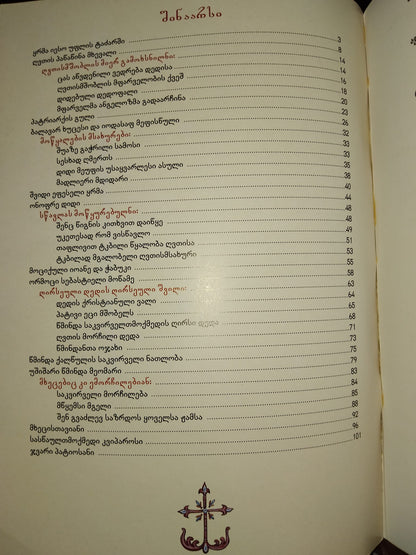 შინაარსი
ყრმა იესო უფლის ტაძარში 3
ღვთის პაწაწინა მხევალი 8
ღვთისმშობლის მიერ გამოხსნილნი: 14
ცას აწვდენილი ვედრება დედისა 14
ღვთისმშობლის მფარველობის ქვეშ 16
დიდებული დედოფალი 18
მფარველმა ანგელოზმა გადაარჩინა 20
პატრიარქის გული 23
ბალავარ ხუცესი და იოდასაფ მეფისწული 26
მოწყალების მსახურები: 32
შუაზე გაჭრილი სამოსი 33
სესხად ღმერთს 33
დიდი მეუფის უსაყვარლესი ასული 35
მადლიერი მდიდარი 38
შვიდი ეფესელი ყრმა 40
ონოფრე დიდი 44
სწავლას მოწყურებულნი: 48
შენც წიგნის კითხვით დაიწყე 48
უკეთესად რომ ვისწავლო 51
თაფლივით ტკბილი წყალობა ღვთისა 53
ტკბილად მგალობელი ღვთისმსახური 55
მოციქული იოანე და ჭაბუკი 58
ორმოცი სებასტიელი მოწამე 60
ღირსეული დედის ღირსეული შვილი: 63
დედის ქრისტიანული ვალი 64
პატივი ეცი მშობელს 65
წმინდა საკვირველთმოქმედის ღირსი დედა 71
ღვთის მორჩილი დედა 73
წმინდანთა ოჯახი 75
წმინდა ქალწულის საკვირველი ნათლობა 79
უშიშარი წმინდა მეომარი 83
მხეცებიც კი ემორჩილებიან: 84
საკვირველი მორჩილება 85
მწყემსი მგელი 88
შენ გვაძლევ საზრდოს ყოველსა ჟამსა 92
მხეცისთავიანი 96
სასწაულთმოქმედი კვიპაროსი 101
ჯვარი პატიოსანი